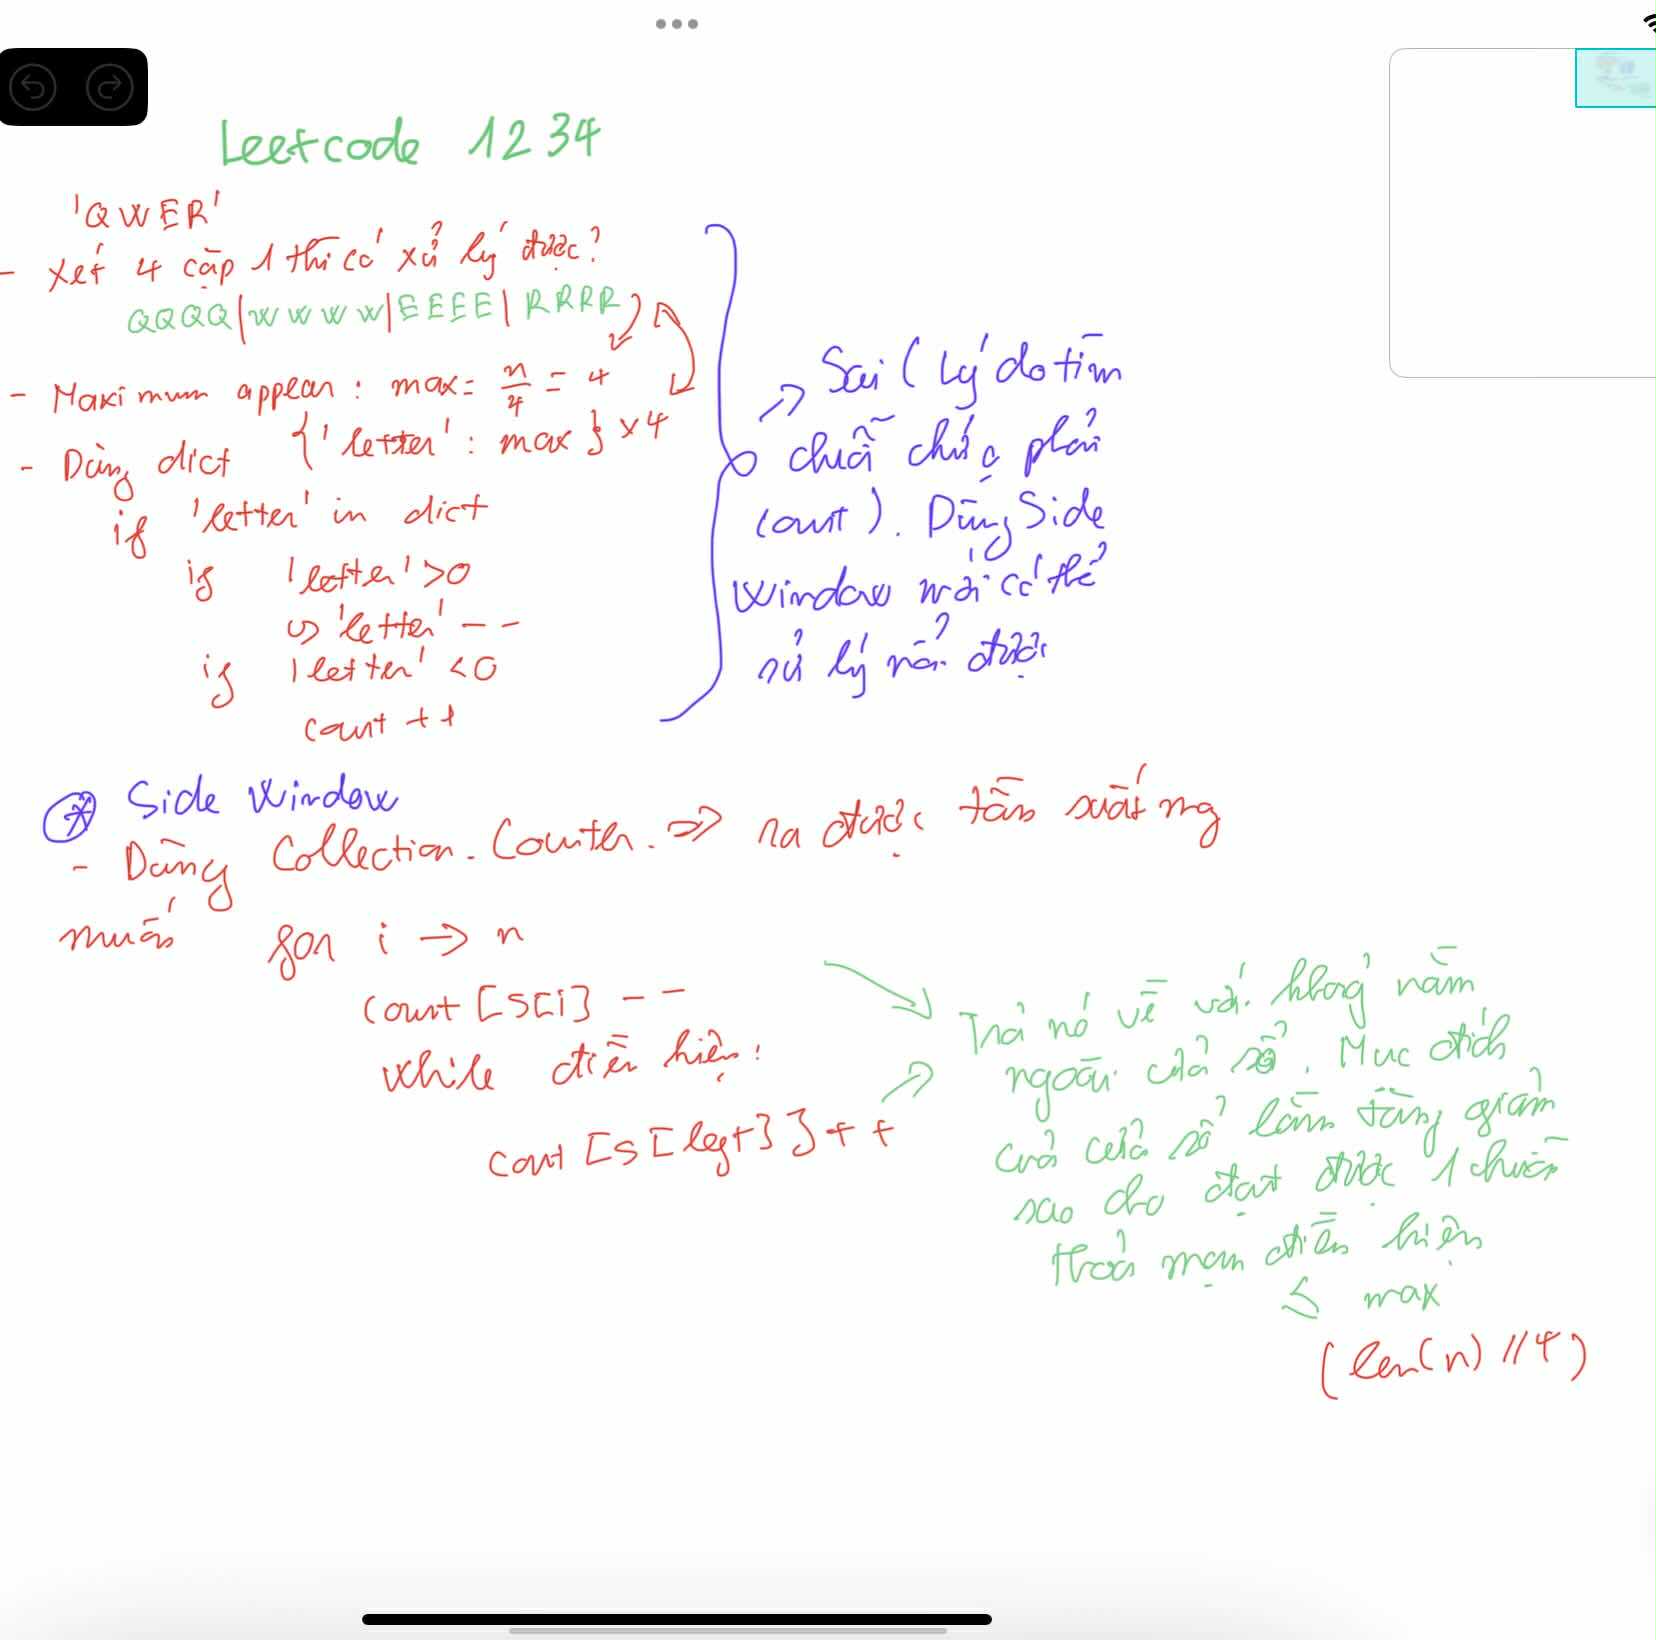 Leetcode 1234
'QWER'
- Xét 4 cặp 1 thì có xử lý được?
QQQQ|WWWW|EEEE|RRRR
- Maximum appear: max = n/4 = 4
- Dùng dict {'letter': max} x4
if 'letter' in dict
if 'letter' > 0
↳ 'letter' --
if 'letter' < 0
count ++
→ Sai (Lý do tìm
chuỗi chứ phải
count). Dùng Side
Window mới có thể
xử lý nó được
* Side Window
- Dùng Collection.Counter. => ra được tần suất mg
muốn
for i → n
count [s[i] --
while điều kiện:
count [s[left]]++
Trả nó về với không nằm
ngoài cửa sổ. Mục đích
của cửa sổ làm tăng giảm
sao cho đạt được 1 chuỗi
thoả mạn điều kiện
≤ max
(len(n)//4)